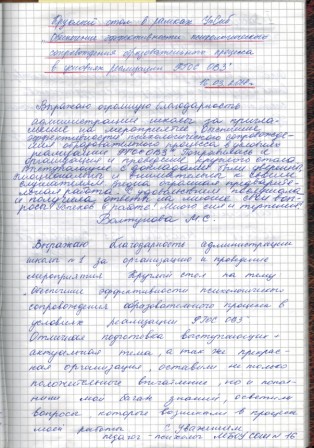 Круглый стол в рамках
Повышение эффективности психологического
сопровождения образовательного процесса
в условиях реализации ФГОС ОВЗ"
Выражаю огромную благодарность
администрации школы за пригла-
шение на мероприятие "Повышение
эффективности психологического сопровожде-
ния образовательного процесса в условиях
реализации ФГОС ОВЗ".
организация и проведение круглого стола.
с докладами были уверенны,
к своим
слушателям. Видна огромная предварите-
льная работа. С удовольствием
и получила ответы на многие свои воп-
росы. Успехов в работе! Много сил и терпения
М.С.
Выражаю благодарность администрации
школы №1 за организацию и проведение
мероприятия Круглый стол на тему
"Повышение эффективности психологического
сопровождения образовательного процесса в
условиях реализации ФГОС ОВЗ"
Отличная подготовка выступающих,
актуальная тема, а так же прекрас-
ная организация оставили не только
положительное впечатление, но и попол-
нили мой багаж знаний, осветили
вопросы которые возникали в процессе
моей работы. С Уважением
педагог-психолог МБОУ СОШ №16